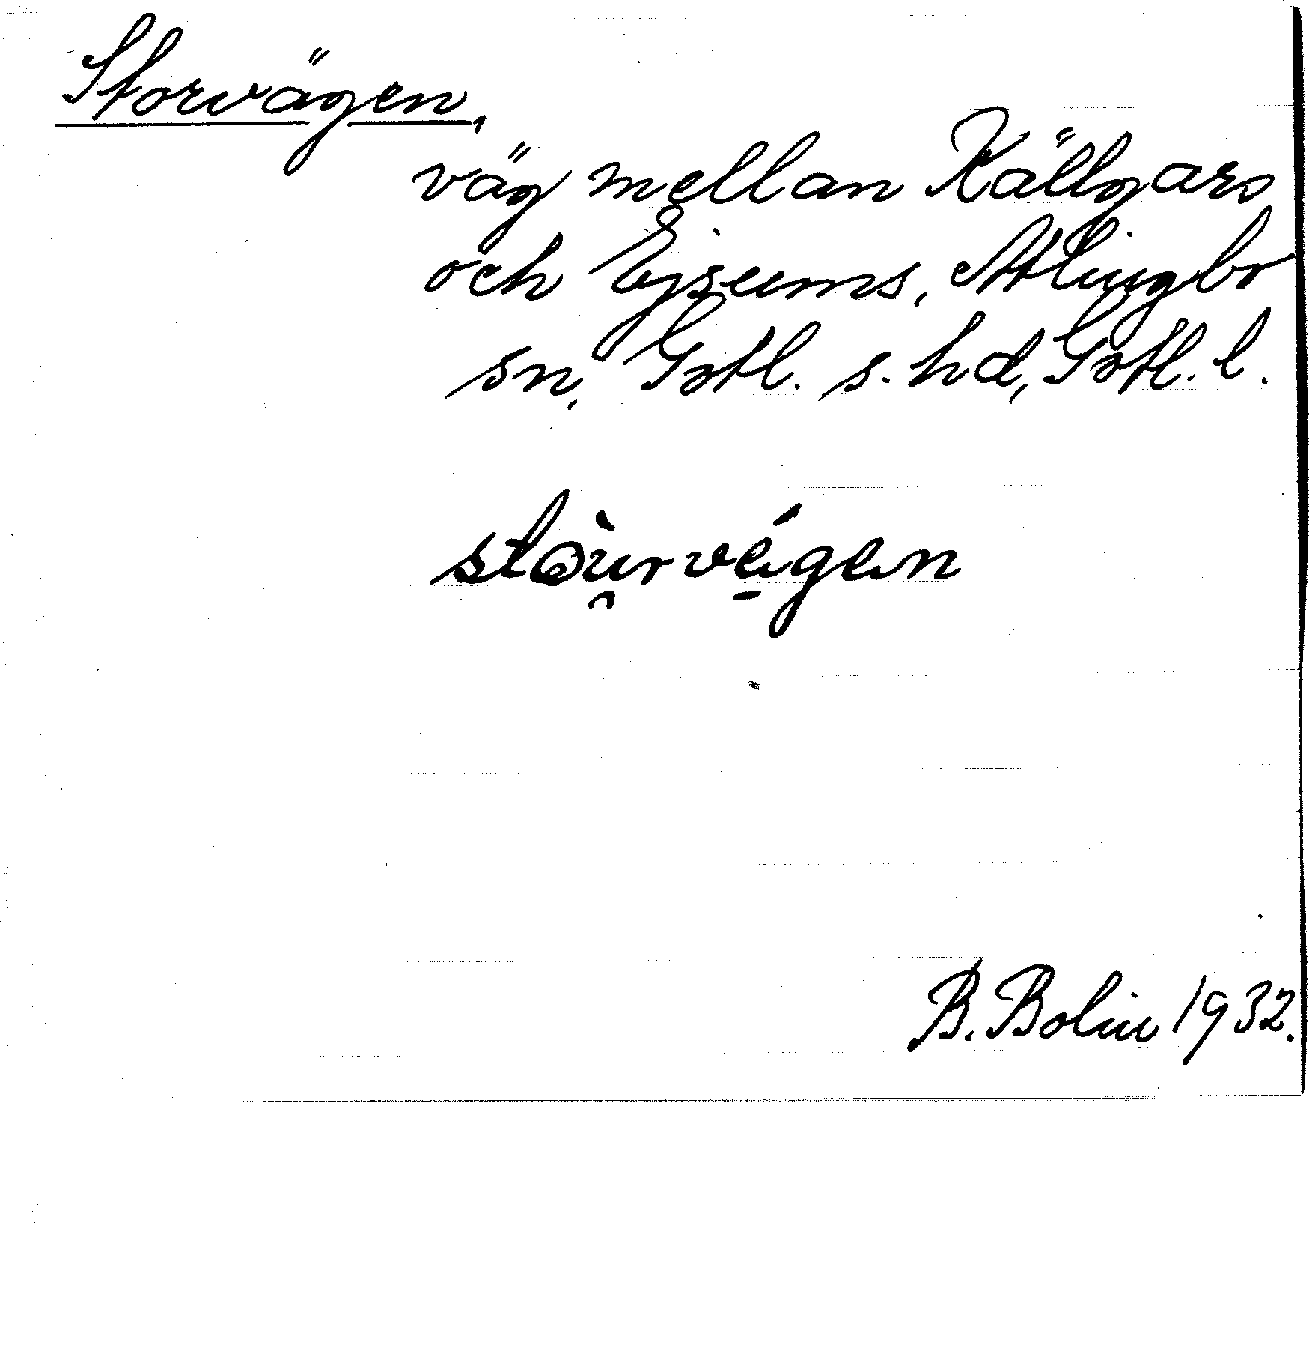 Storvägen,
väg mellan Källgars
och Ejsums, Atlingbo
sn, Gotl. s. hd, Gotl. l.
stòu̯rvé̠gen
B. Bolin 1932.